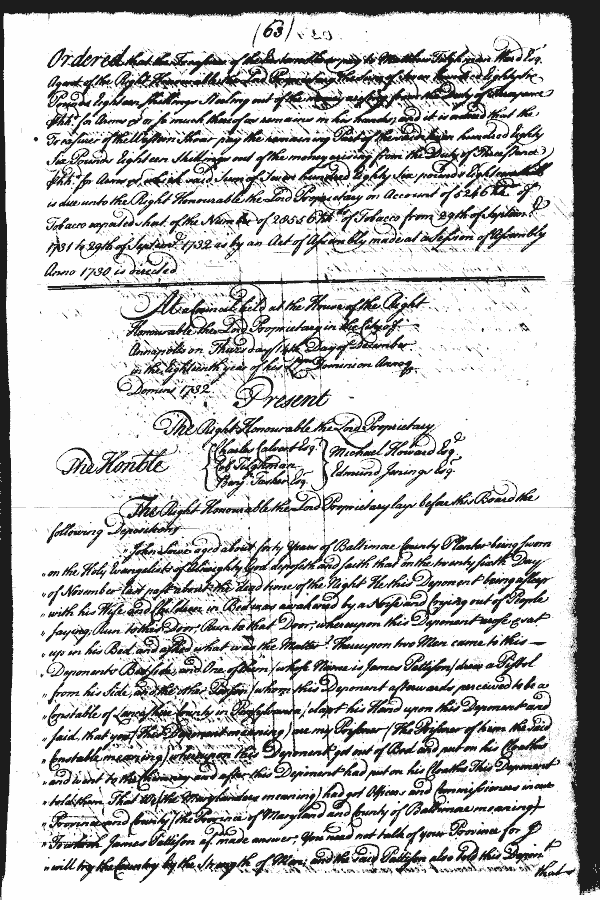 (63)
Ordered that the Treasurer of the Eastern Shoar pay to Matthew Tilghman Ward Esq.
Agent of the Right Honourable the Lord Proprietary the Sum of Seven hundred Eighty Six
Pounds Eighteen Shillings Sterling out of the money arising from the Duty of three pence
for Arms or so much thereof as remains in his hands, and it is ordered that the
Treasurer of the Western Shoar pay the remaining Part of the said Seven hundred Eighty
Six Pounds Eighteen Shillings out of the money arising from the Duty of Three pence
for Arms &c. which said Sum of Seven hundred Eighty Six pounds Eighteen
is due unto the Right Honourable the Lord Proprietary on Account of 5246 of
Tobacco exported short of the Number of 28556 of Tobacco from 29th of Septem.
1731 to 29th of Septem. 1732 as by an Act of Assembly made at a Session of Assembly
Anno 1730 is directed
At a Council held at the House of the Right
Honourable the Lord Proprietary in the City of
Annapolis on Thursday 14th Day of December
in the Eighteenth year of his Dominion Annoq
Domini 1732
Present
The Right Honourable the Lord Proprietary
Charles Calvert Esq. Michael Howard Esq
The Honble
Tilghman
Benj. Tasker Esq. Edmund Jenings Esq
The Right Honourable the Lord Proprietary lays before this Board the
following Depositions
John Lowe aged about forty Years of Baltimore County Planter being sworn
on the Holy Evangelists of Almighty God deposeth and saith that on the twenty sixth Day
of November last past about the dead time of the Night He this Deponent being asleep
with his Wife and Children in Bed was awakened by a Noise and Crying out of People
saying, Run to this Door, Run to that Door, whereupon this Deponent rose & sat
up in his Bed and asked what was the Matter Thereupon two Men came to this
Deponents Bed side, and One of them (whose Name is James Pattison) drew a Pistol
from his Side, and the other Person (whom this Deponent afterwards perceived to be a
Constable of Lancaster County in Pensylvania) clapt his Hand upon this Deponent and
said, that you (this Deponent meaning) are my Prisoner (The Prisoner of him the said
Constable meaning) whereupon this Deponent got out of Bed and put on his Cloaths
and went to the Chimney and after this Deponent had put on his Cloaths This Deponent
told them That We (the Marylanders meaning) had got Officers and Commissioners in our
Province and County (the Province of Maryland and County of Baltimore meaning)
To whom James Pattison af. made answer, You need not talk of your Province for I
will try the Country by the Strength of Men; and the said Pattison also told this Depon.t
that